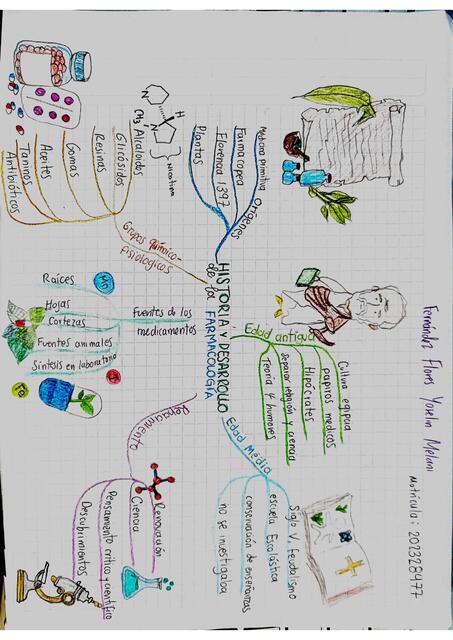 Fernández Flores Yoselin Melani
Matrícula: 202328977
HISTORIA Y DESARROLLO
de la FARMACOLOGÍA
Orígenes
Medicina primitiva
Farmacopea
Florencia 1397
Plantas
Edad antigua
Cultura egipcia
papiros médicos
Hipócrates
Separar religión y ciencia
Teoría 4 humores
Edad Media
Siglo V. feudalismo
escuela Escolástica
conservación de enseñanzas
no se investigaba
Renacimiento
Renovación
Ciencia
Pensamiento crítico y científico
Descubrimientos
Fuentes de los
medicamentos
Raíces
Hojas
Cortezas
Fuentes animales
Síntesis en laboratorio
Mn
I
Grupos químico-
fisiológicos
Alcaloides
Glicósidos
Resinas
Gomas
Aceites
Taninos
Antibióticos
H
N
CH3
Nicotina